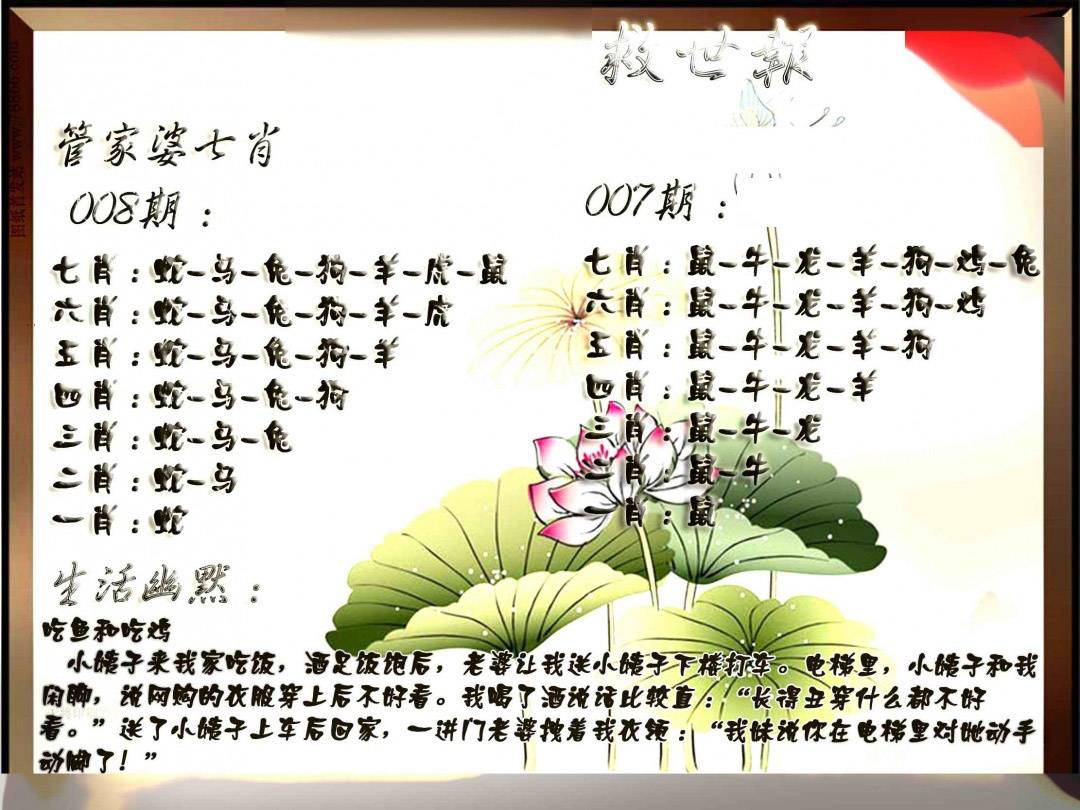 救世報
管家婆七肖
008期：
七肖：蛇-马-兔-狗-羊-虎-鼠
六肖：蛇-马-兔-狗-羊-虎
五肖：蛇-马-兔-狗-羊
四肖：蛇-马-兔-狗
三肖：蛇-马-兔
二肖：蛇-马
一肖：蛇
007期：
七肖：鼠-牛-龙-羊-狗-鸡-兔
六肖：鼠-牛-龙-羊-狗-鸡
五肖：鼠-牛-龙-羊-狗
四肖：鼠-牛-龙-羊
三肖：鼠-牛-龙
二肖：鼠-牛
一肖：鼠
生活幽默：
吃鱼和吃鸡
小姨子来我家吃饭，酒足饭饱后，老婆让我送小姨子下楼打车。电梯里，小姨子和我
闲聊，说网购的衣服穿上后不好看。我喝了酒说话比较直：“长得丑穿什么都不好
看。”送了小姨子上车后回家，一进门老婆拽着我衣领：“我妹说你在电梯里对她动手
动脚了！”